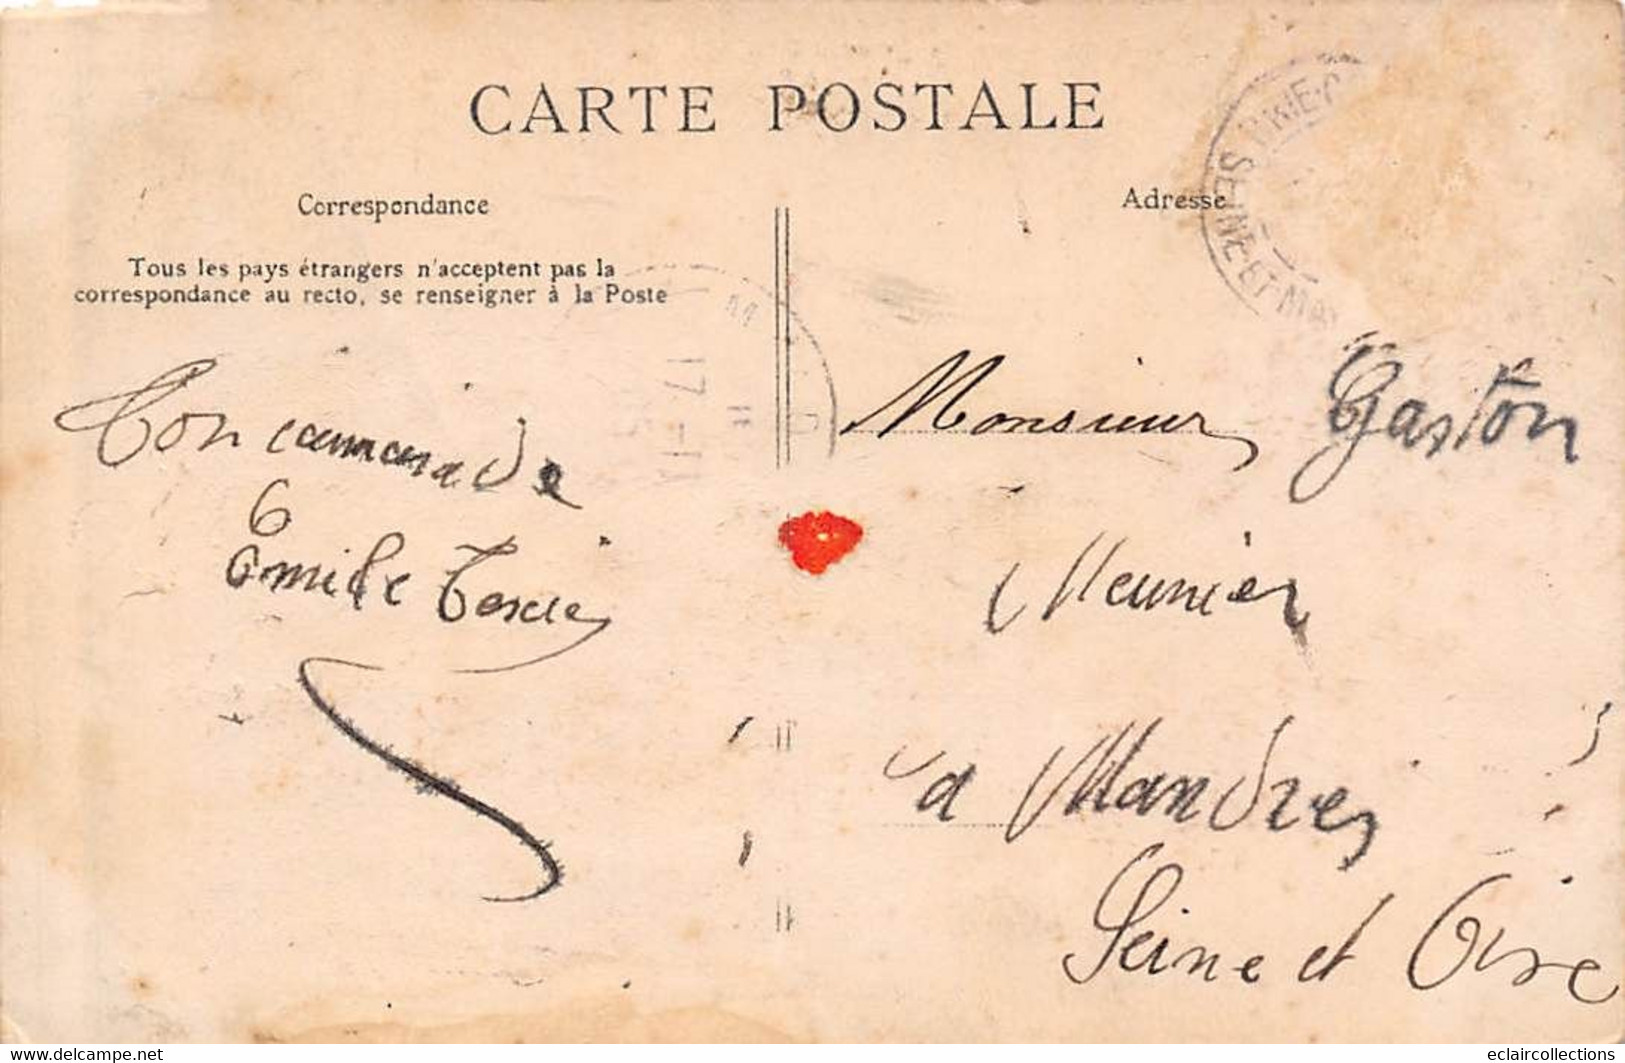 CARTE POSTALE
Correspondance
Adresse
Tous les pays étrangers n'acceptent pas la
correspondance au recto, se renseigner à la Poste
SEINE-ET-MA
17
Ton camarade
Emile
Monsieur Gaston
Meunier
a Mandres
Seine et Oise
delcampe.net
eclaircollections